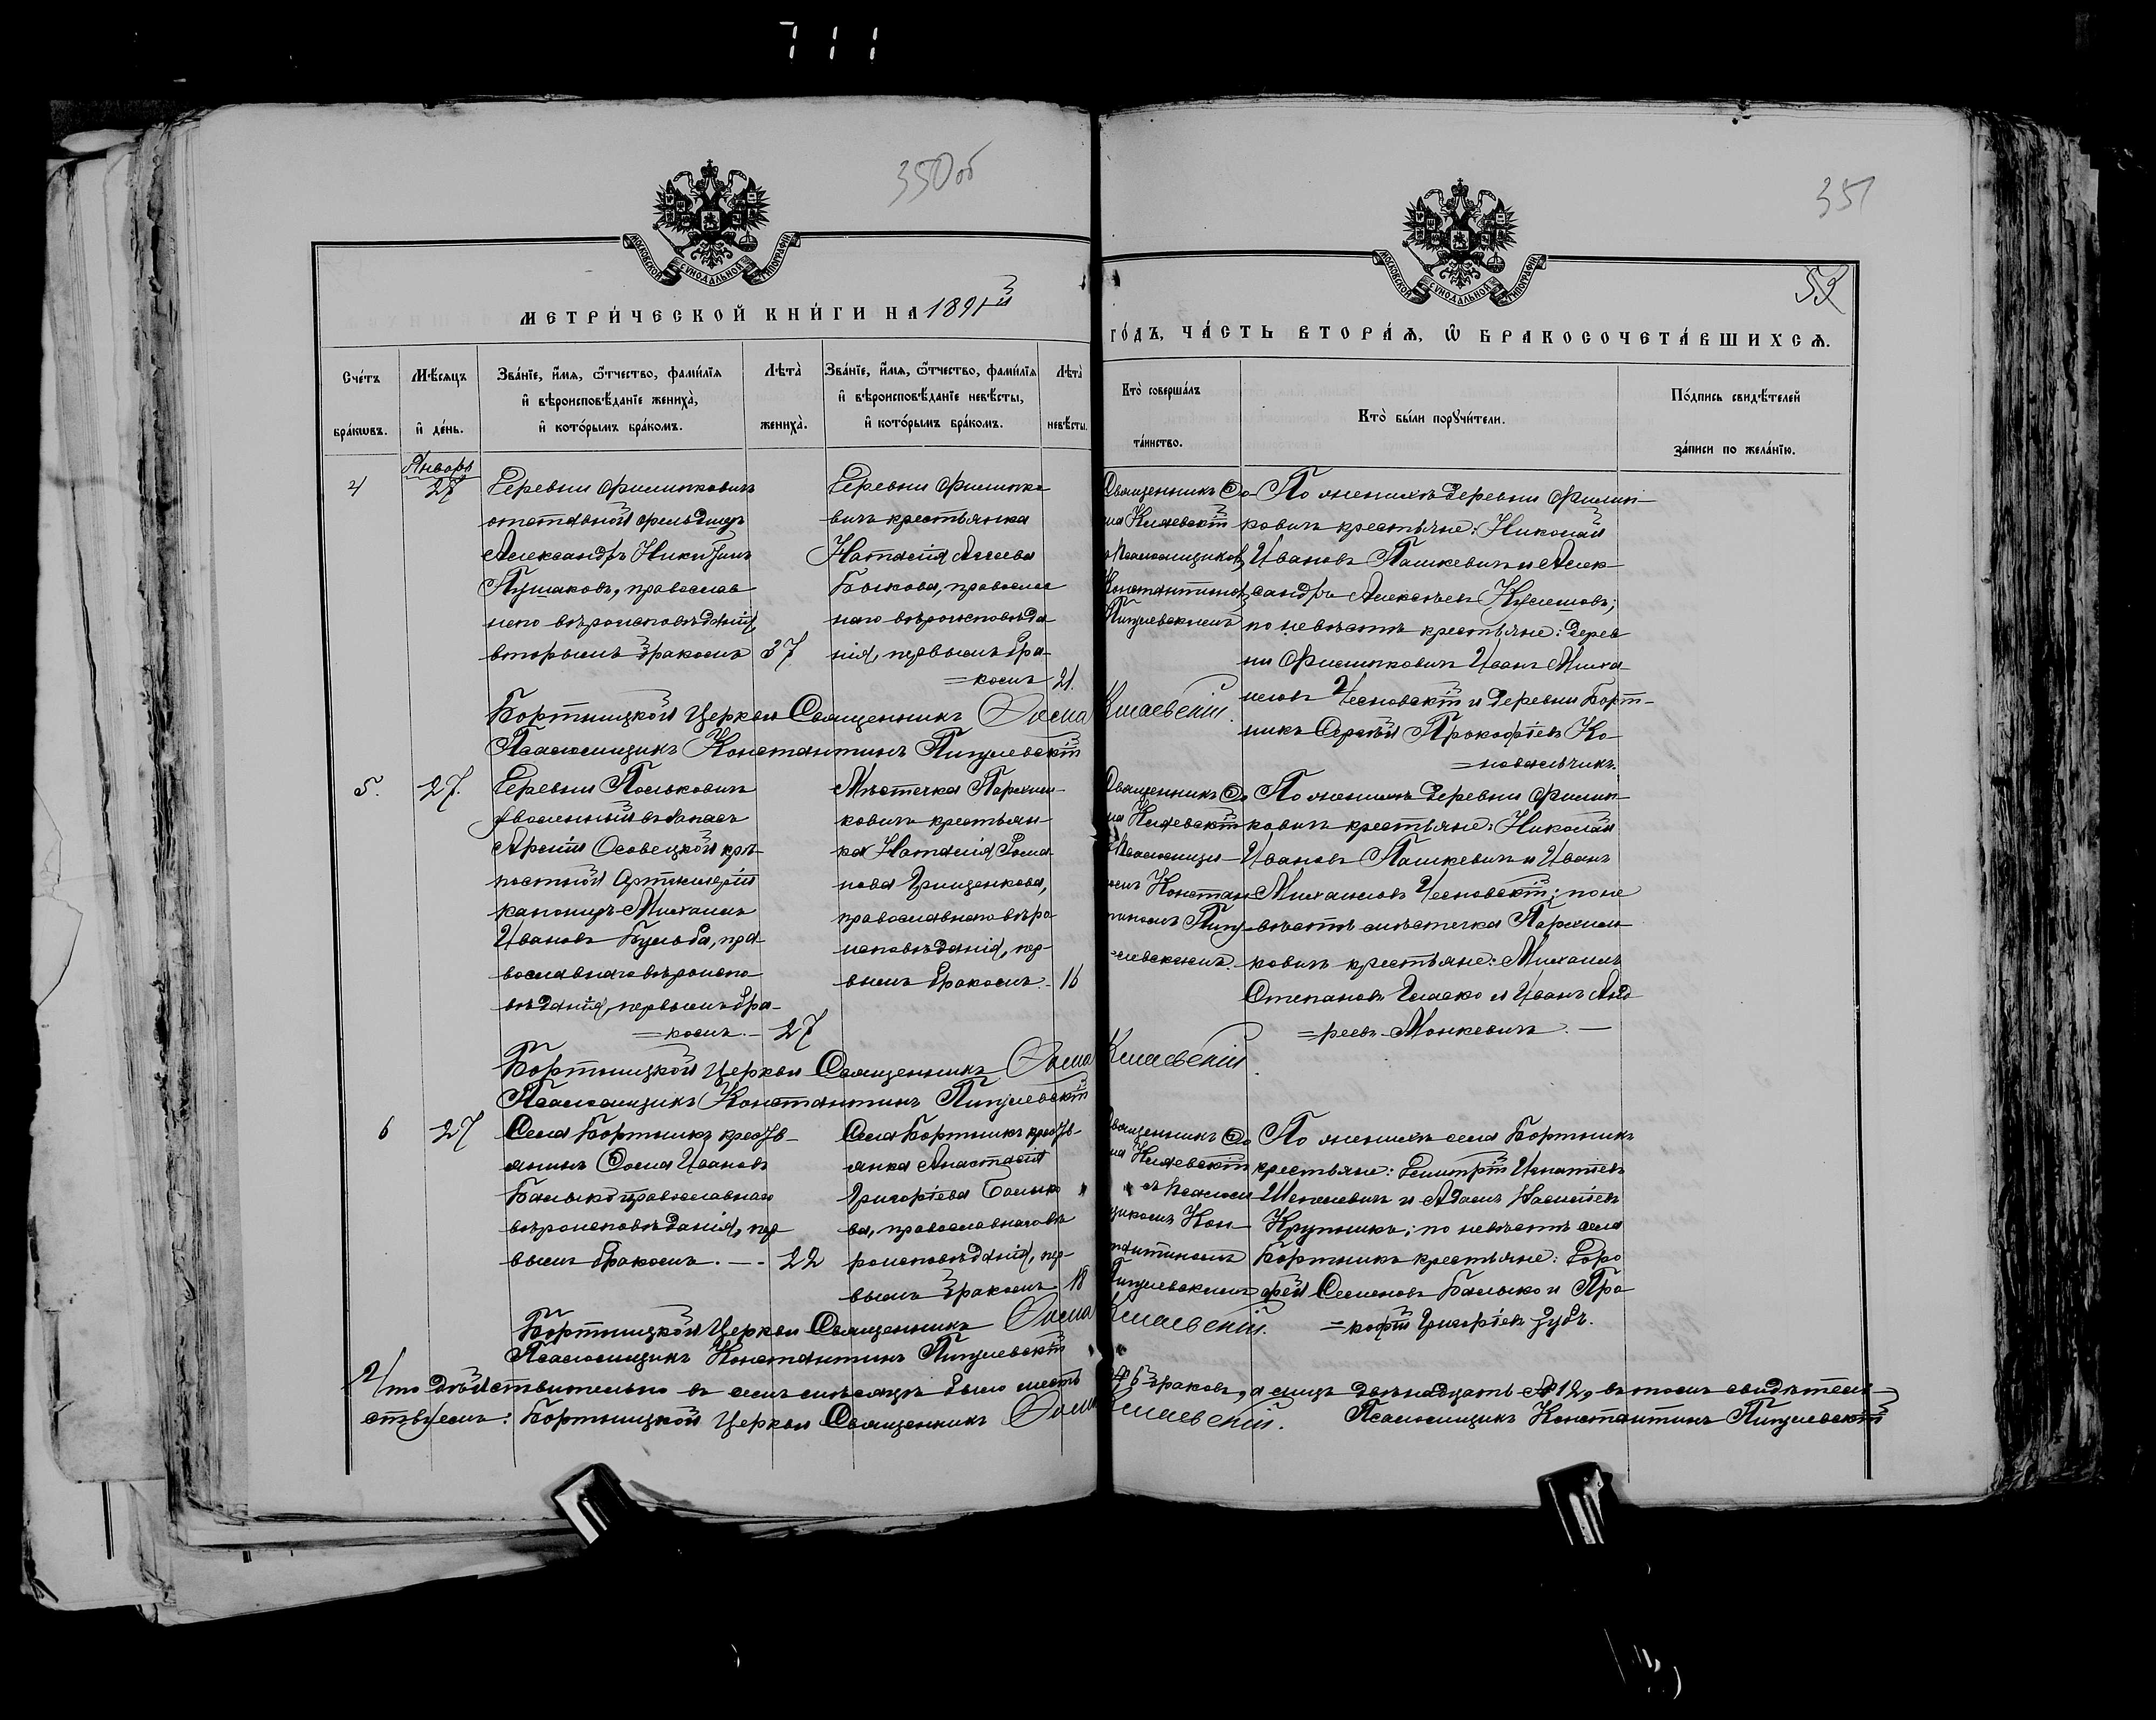 711
350 об
351
МОСКОВСКОЙ СѴНОДАЛЬНОЙ ТИПОГРАФІИ
МОСКОВСКОЙ СѴНОДАЛЬНОЙ ТИПОГРАФІИ
59
МЕТРИ́ЧЕСКОЙ КНИ́ГИ НА 1891й
ГО́ДЪ, ЧА́СТЬ ВТОРА́Ѧ, Ѽ БРАКОСОЧЕТА́ВШИХСѦ.
Сче́тъ бра́кѡвъ.
Мѣ́сѧцъ и҆ де́нь.
Зва́нїе, и҆́мѧ, ѻ҆́тчество, фами́лїѧ
и҆ вѣроисповѣ́данїе жениха̀,
и҆ кото́рымъ бра́комъ.
Лѣта̀ жениха̀.
Зва́нїе, и҆́мѧ, ѻ҆́тчество, фами́лїѧ
и҆ вѣроисповѣ́данїе невѣ́сты,
и҆ кото́рымъ бра́комъ.
Лѣта̀ невѣ́сты.
Кто̀ соверша́лъ та́инство.
Кто̀ бы́ли порꙋчи́тели.
По́дпись свидѣ́телей за́писи по жела́нїю.
4
Январь
27
Деревни Филипковичъ
отставной фельдшеръ
Александръ Никитинъ
Пушаковъ, православ
наго вѣроисповѣданія,
вторымъ бракомъ
37
Деревни Филипко
вичъ крестьянка
Наталія Агеева
Быкова, православ
наго вѣроисповѣда
нія, первымъ бра-
=комъ
21.
Священникъ Ѳо
ма Кмаевскій
Псаломщикомъ
Константиномъ
Пигулевскимъ
По женихѣ деревни Филип-
ковичъ крестьяне: Николай
Ивановъ Пашкевичъ и Алек
сандръ Алексѣевъ Кулешовъ;
по невѣстѣ крестьяне: дерев
ни Филипковичъ Иванъ Миха
иловъ Чесновскій и деревни Борт-
никъ Сергѣй Прокофіевъ Ко-
=новальчикъ.
Бортницкой Церкви Священникъ Ѳома Кмаевскій.
Псаломщикъ Константинъ Пигулевскій
5.
27.
Деревни Паськовичъ
уволенный въ запасъ
Арміи Осовецкой крѣ-
постной Артиллеріи
канониръ Михаилъ
Ивановъ Бульба, пра
вославнаго вѣроиспо
вѣданія, первымъ бра-
=комъ. —
27
Мѣстечка Пархим-
ковичъ крестьян-
ка Наталія Рома
нова Грищенкова,
православнаго вѣро
исповѣданія, пер-
вымъ бракомъ. —
16
Священникъ Ѳо
ма Кмаевскій
Псаломщи-
комъ Констан
тиномъ Пигу-
=левскимъ.
По женихѣ деревни Филип-
ковичъ крестьяне: Николай
Ивановъ Пашкевичъ и Иванъ
Михаиловъ Чесновскій; по не
вѣстѣ мѣстечка Пархим-
ковичъ крестьяне: Михаилъ
Степановъ и Иванъ Анд
=реевъ Монкевичъ. —
Бортницкой Церкви Священникъ Ѳома Кмаевскій.
Псаломщикъ Константинъ Пигулевскій
6
27
Села Бортникъ кресть-
янинъ Ѳома Ивановъ
Балыко православнаго
вѣроисповѣданія, пер
вымъ бракомъ. —
22
Села Бортникъ кресть-
янка Анастасія
Григоріева Балыко
ва, православнаго вѣ
роисповѣданія, пер-
вымъ бракомъ
18
Священникъ Ѳо
ма Кмаевскій
съ Псалом
щикомъ Кон-
стантиномъ
Пигулевскимъ
По женихѣ села Бортникъ
крестьяне: Димитрій Игнатіевъ
Шепелевичъ и Адамъ Васильевъ
Крупникъ; по невѣстѣ села
Бортникъ крестьяне: Доро
фей Семеновъ Балыко и Про
=кофій Григоріевъ Зубъ.
Бортницкой Церкви Священникъ Ѳома Кмаевскій.
Псаломщикъ Константинъ Пигулевскій
Что дѣйствительно въ семъ мѣсяцѣ было шесть № 6 браковъ, а лицъ двѣнадцать № 12, въ томъ свидѣтель-
ствуемъ: Бортницкой Церкви Священникъ Ѳома Кмаевскій. Псаломщикъ Константинъ Пигулевскій